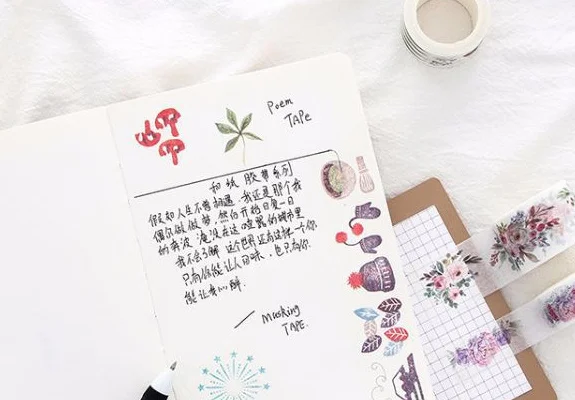 Poem
TAPe
和纸胶带系列
假如人生不曾相遇,我还是那个我
偶尔做做梦,然后开始日复一日
的奔波,淹没在这喧嚣的城市里
我不会了解,这个世界还有这样一个你
只有你能让人回味,也只有你
能让我心醉.
Masking
TAPE.